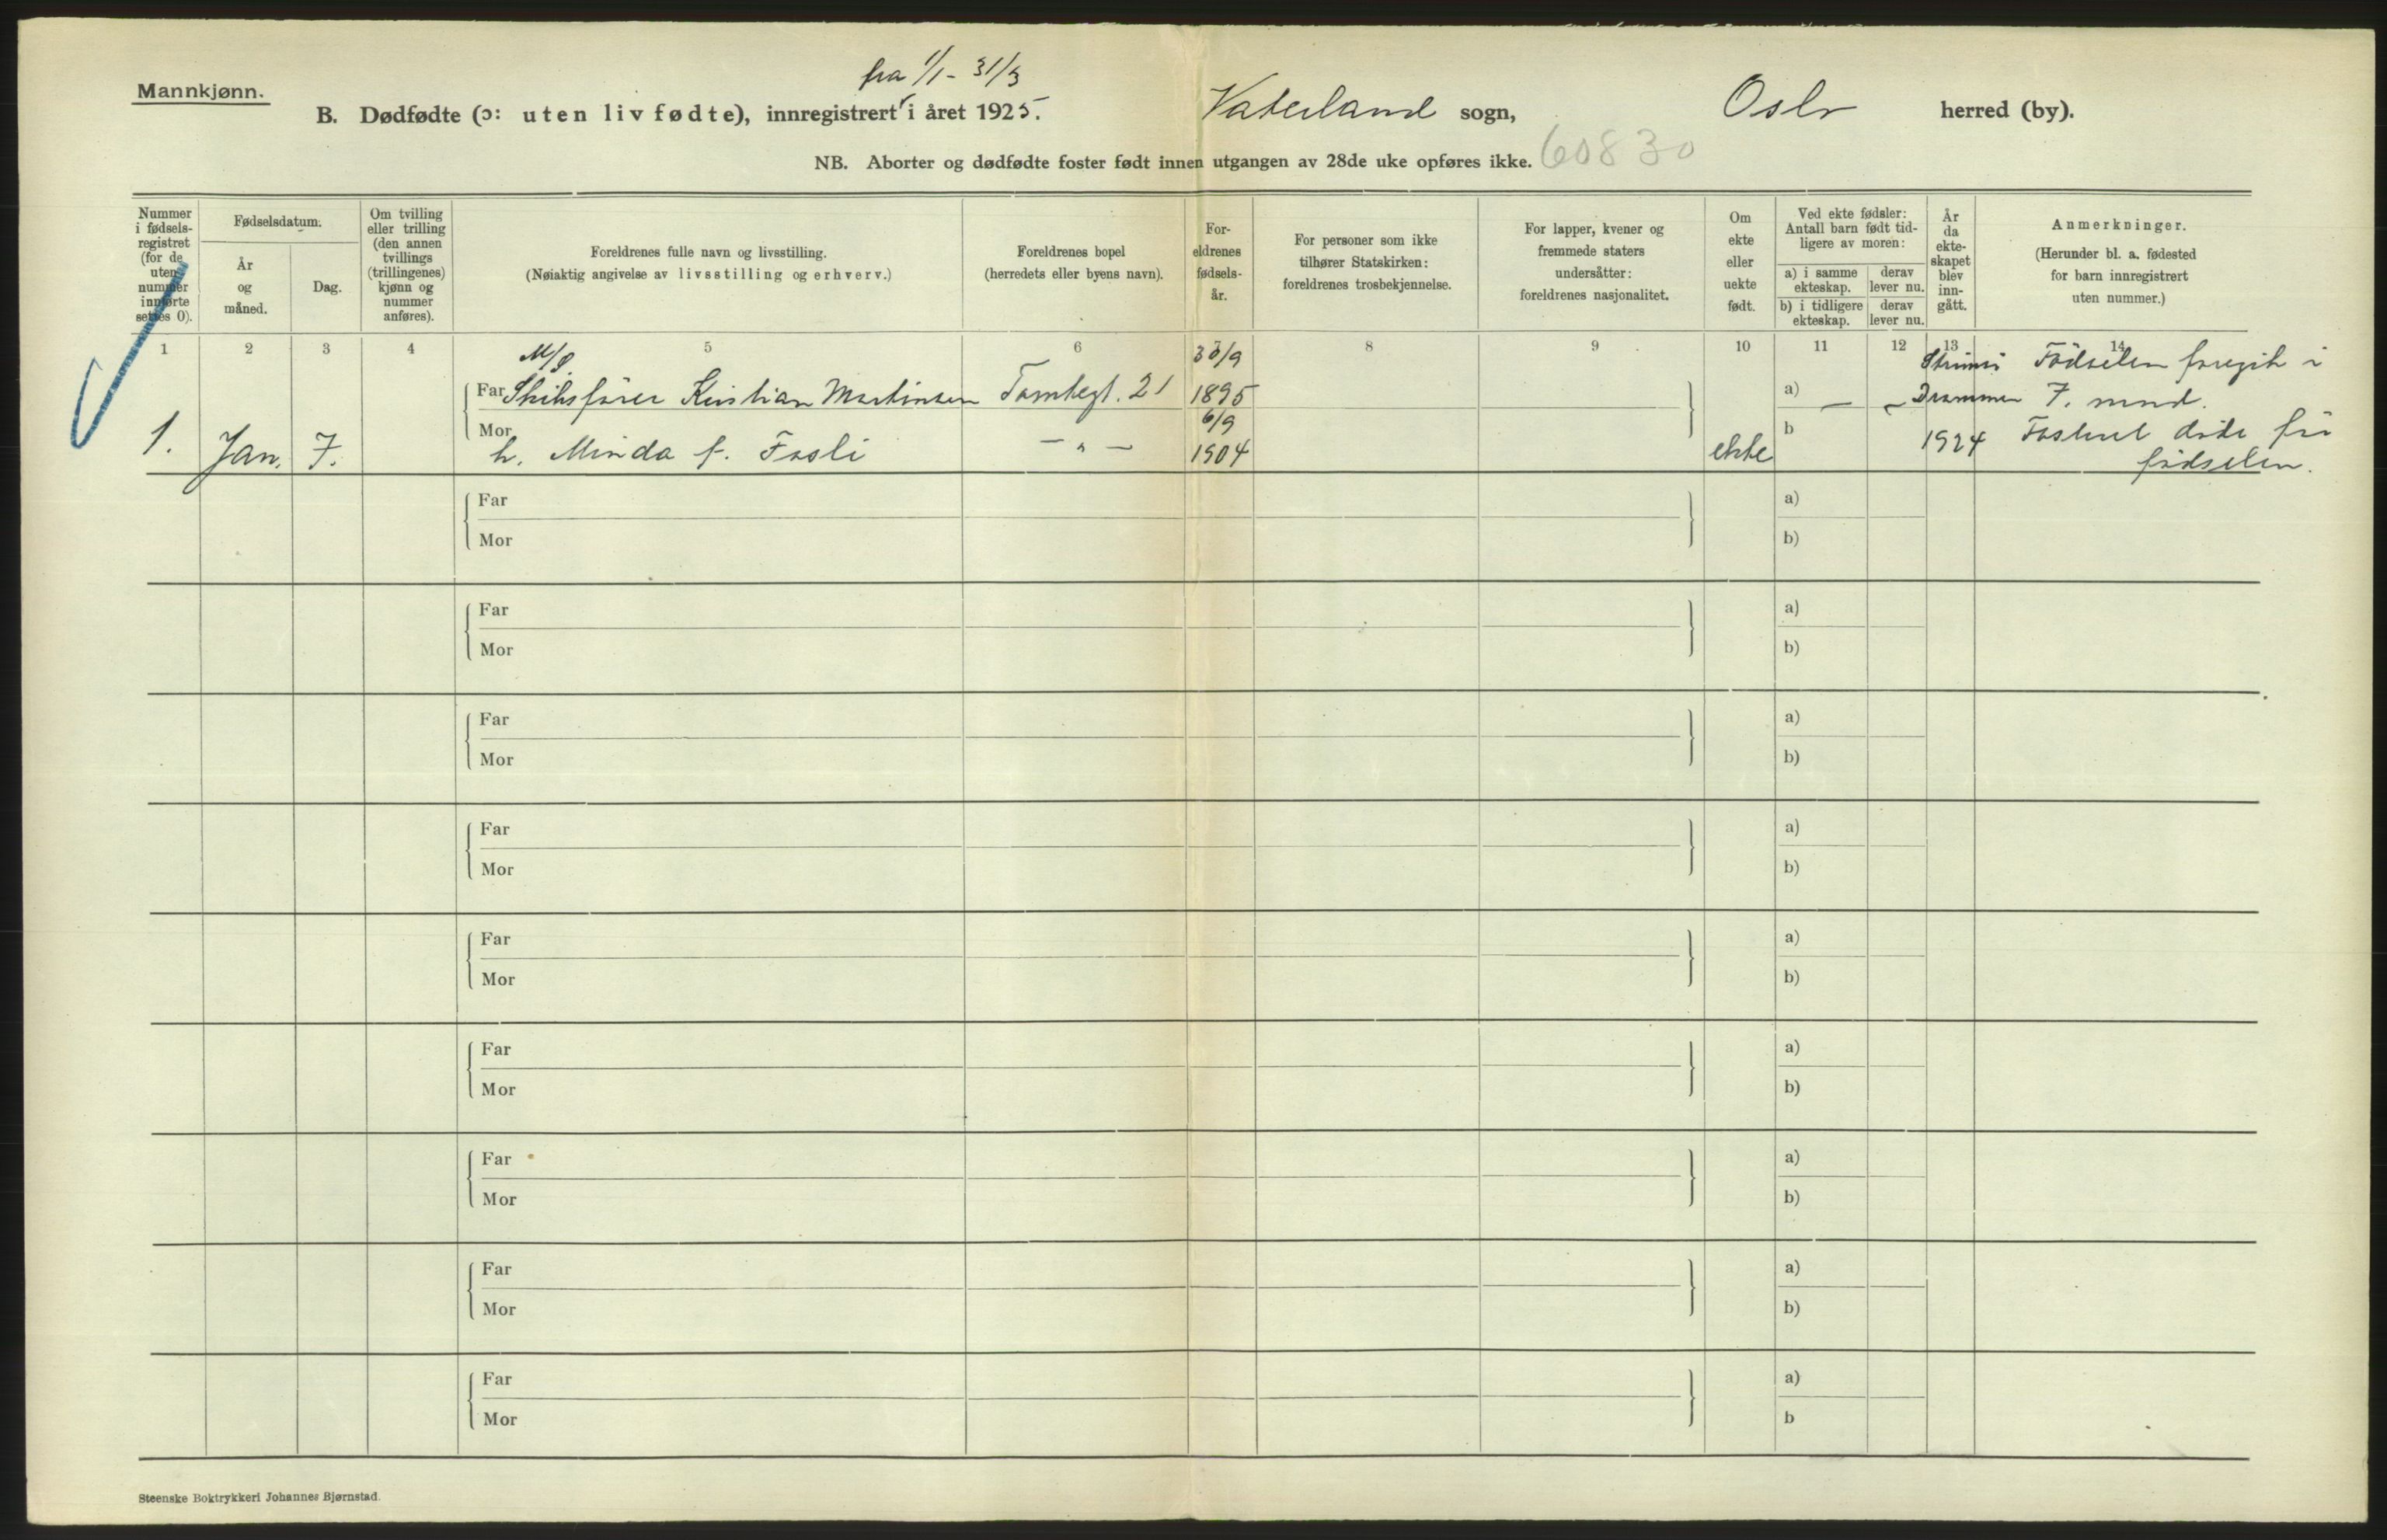 Mannkjønn.
fra 1/1 - 31/3
B. Dødfødte (ɔ: uten liv fødte), innregistrert i året 1925. Vaterland sogn, Oslo herred (by).
NB. Aborter og dødfødte foster født innen utgangen av 28de uke opføres ikke. 60830
Nummer i fødsels-registret (for de uten nummer innførte settes 0).
Fødselsdatum.
År og måned.
Dag.
Om tvilling eller trilling (den annen tvillings (trillingenes) kjønn og nummer anføres).
Foreldrenes fulle navn og livsstilling.
(Nøiaktig angivelse av livsstilling og erhverv.)
Foreldrenes bopel
(herredets eller byens navn).
For-eldrenes fødsels-år.
For personer som ikke tilhører Statskirken: foreldrenes trosbekjennelse.
For lapper, kvener og fremmede staters undersåtter: foreldrenes nasjonalitet.
Om ekte eller uekte født.
Ved ekte fødsler: Antall barn født tid-ligere av moren:
a) i samme ekteskap. derav lever nu.
b) i tidligere ekteskap. derav lever nu.
År da ekte-skapet blev inn-gått.
Anmerkninger.
(Herunder bl. a. fødested for barn innregistrert uten nummer.)
1 2 3 4 5 6 8 9 10 11 12 13 14
M/S 30/9 Fødselen foregik i
Far Skibsfører Kristian Martinsen Tomtegt. 21 1895 a) — — Drammen 7. mnd.
Mor 6/9 b 1924 Fosteret døde før
1. Jan. 7. h. Minda f. Fosli — " — 1904 ekte fødselen.
Far a)
Mor b)
Far a)
Mor b)
Far a)
Mor b)
Far a)
Mor b)
Far a)
Mor b)
Far a)
Mor b)
Far a)
Mor b)
Far a)
Mor b)
Far a)
Mor b
Steenske Boktrykkeri Johannes Bjørnstad.